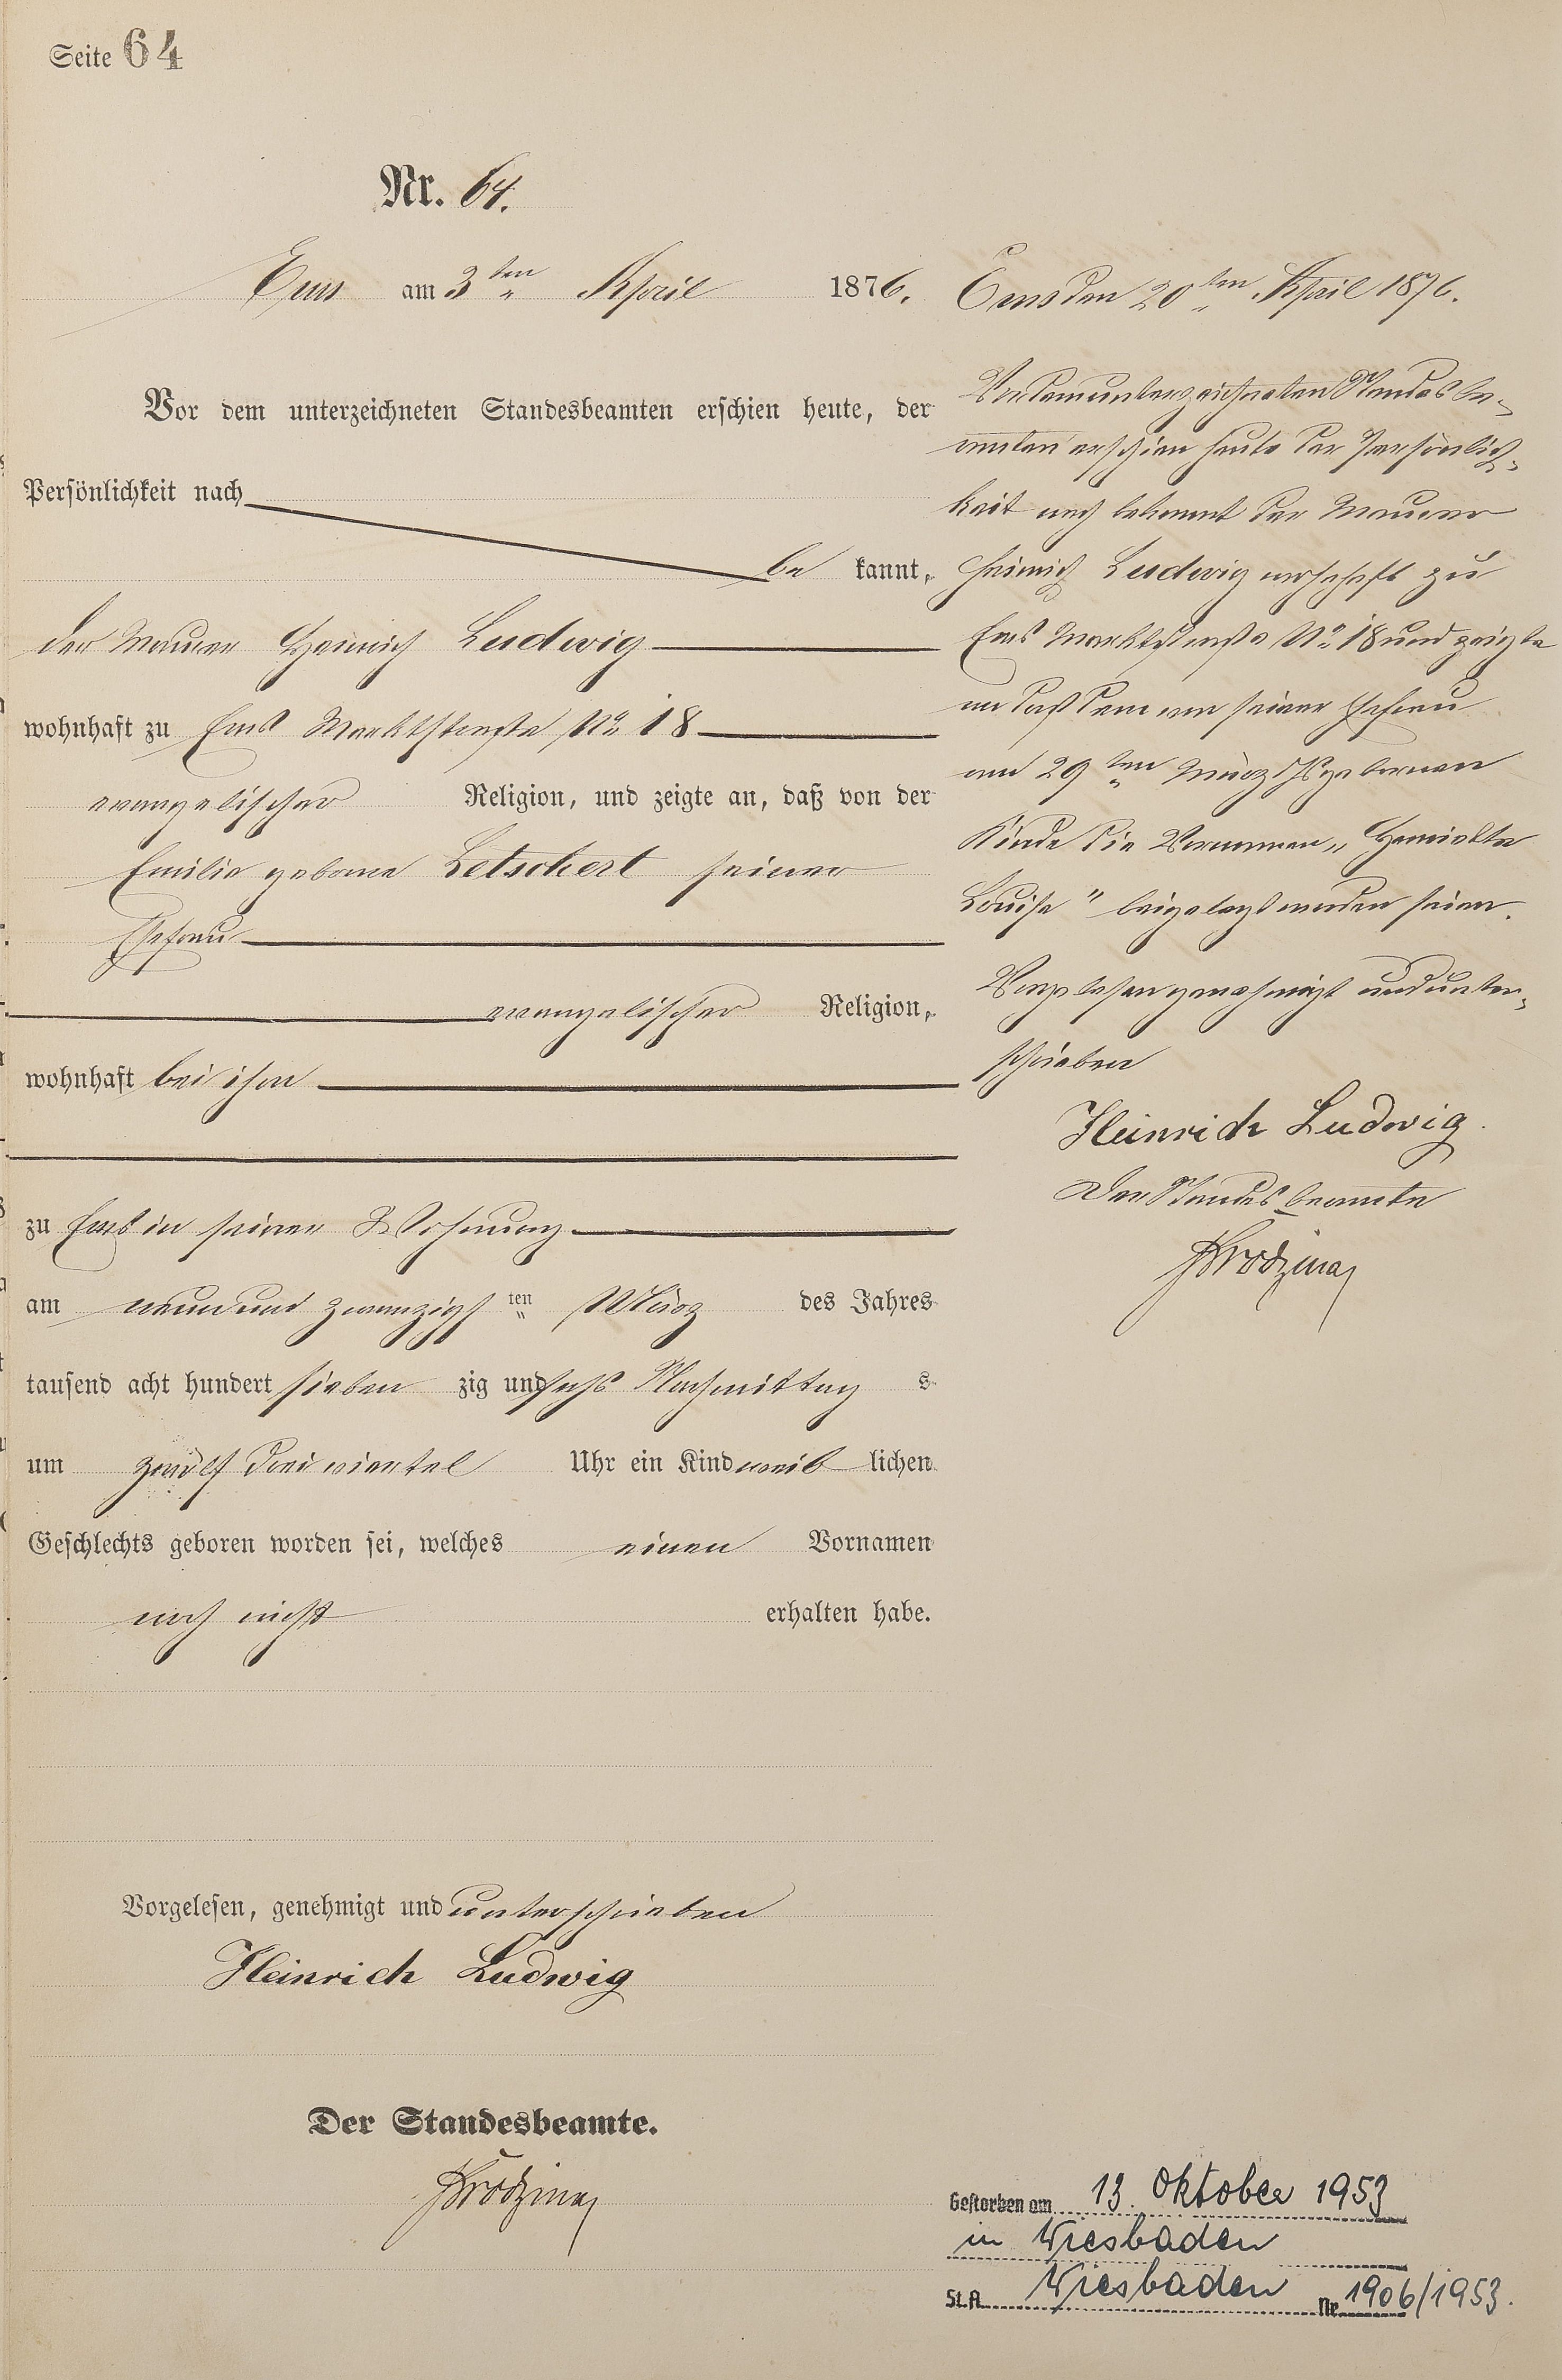 Seite 64
Nr. 64.
Ems am 3ten April 1876.
Vor dem unterzeichneten Standesbeamten erschien heute, der
Persönlichkeit nach
be kannt,
der Maurer Heinrich Ludwig
wohnhaft zu Ems Marktstraße No 18
evangelischer Religion, und zeigte an, daß von der
Emilie geborne Letschert seiner
Ehefrau
evangelischer Religion,
wohnhaft bei ihm
zu Ems in seiner Wohnung
am neunundzwanzigsten März des Jahres
tausend acht hundert sieben zig und sechs Nachmittag s
um zwölf dreiviertel Uhr ein Kind weib lichen
Geschlechts geboren worden sei, welches einen Vornamen
noch nicht erhalten habe.
Vorgelesen, genehmigt und unterschrieben
Heinrich Ludwig
Der Standesbeamte.
Ems den 20ten April 1876.
Vor dem unterzeichneten Standesbe-
amten erschien heute der Persönlich-
keit nach bekannt der Maurer
Heinrich Ludwig wohnhaft zu
Ems Marktstraße No 18 und zeigte
an daß dem von seiner Ehefrau
am 29ten März geborenen
Kinde die Vornamen „Henriette
Louise" beigelegt worden seien.
Vorgelesen genehmigt und unter-
schrieben
Heinrich Ludwig.
Der Standesbeamte
Gestorben am 13. Oktober 1953
in Wiesbaden
St.A. Wiesbaden Nr. 1906/1953.